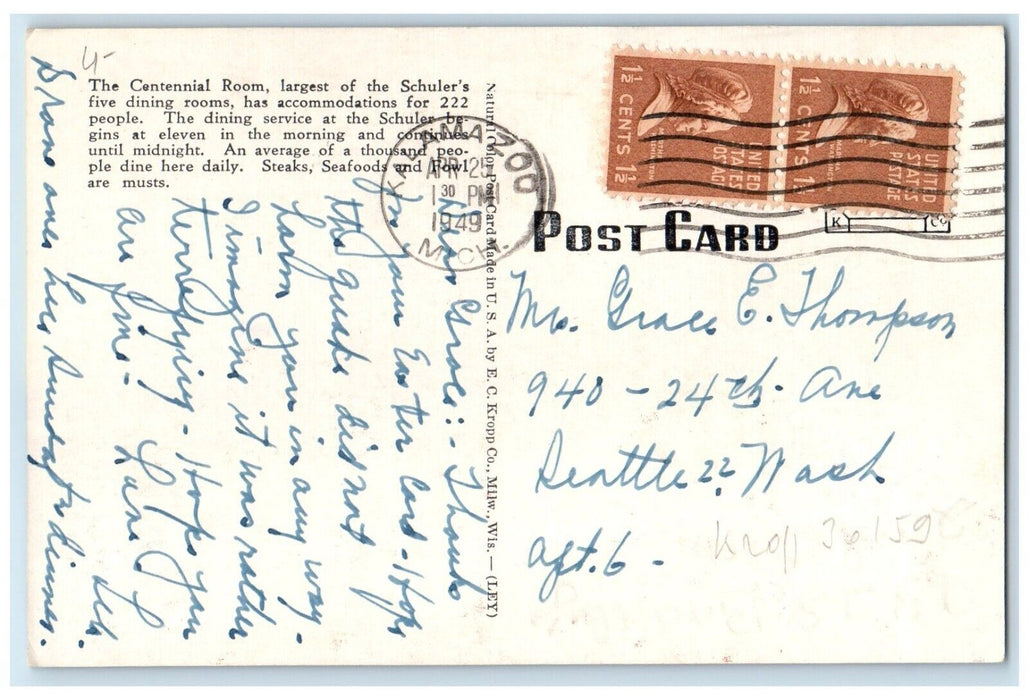 4-
The Centennial Room, largest of the Schuler's
five dining rooms, has accommodations for 222
people. The dining service at the Schuler be-
gins at eleven in the morning and continues
until midnight. An average of a thousand peo-
ple dine here daily. Steaks, Seafoods and Fowl
are musts.
KALAMAZOO
APR 25
1 30 PM
1949
MICH.
Natural Color Post Card Made in U. S. A. by E. C. Kropp Co., Milw., Wis. — (LEY)
1½ CENTS 1½
UNITED
STATES
POSTAGE
1½ CENTS 1
UNITED
STATES
POSTAGE
POST CARD
K Co
Dear Grace:- Thanks
for your Easter Card - Hope
the quake did not
harm you in any way.
I imagine it was rather
terrifying. Hope you
are fine. Love
Drove over here Sunday for dinner.
Mrs. Grace E. Thompson
940 - 24th Ave
Seattle 22, Wash
Apt. 6 -
Kroll 36159